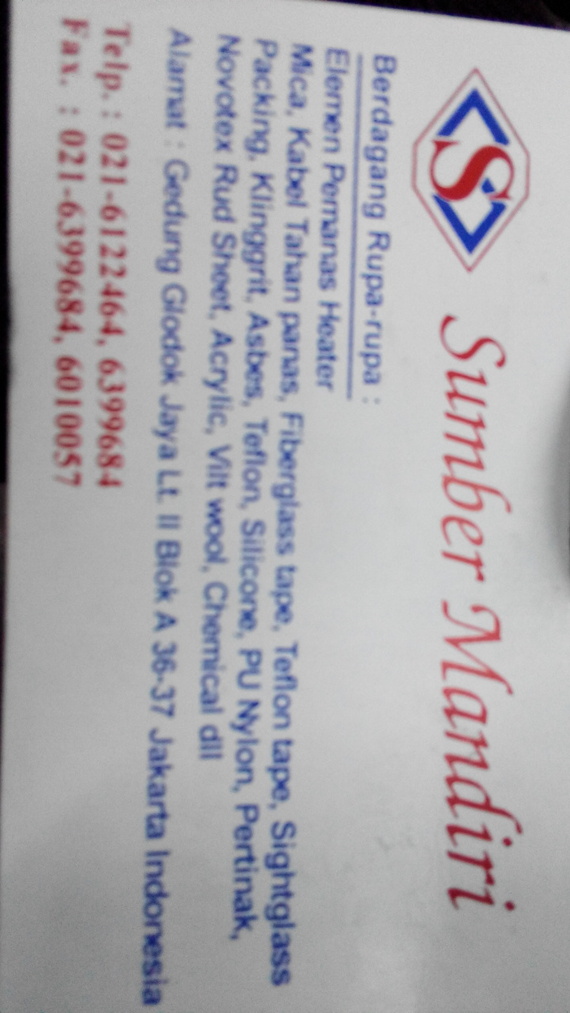 S
Sumber Mandiri
Berdagang Rupa-rupa :
Elemen Pemanas Heater
Mica, Kabel Tahan panas, Fiberglass tape, Teflon tape, Sightglass
Packing, Klinggrit, Asbes, Teflon, Silicone, PU Nylon, Pertinak,
Novotex Rud Sheet, Acrylic, Vilt wool, Chemical dll
Alamat : Gedung Glodok Jaya Lt. II Blok A 36-37 Jakarta Indonesia
Telp. : 021-6122464, 6399684
Fax. : 021-6399684, 6010057